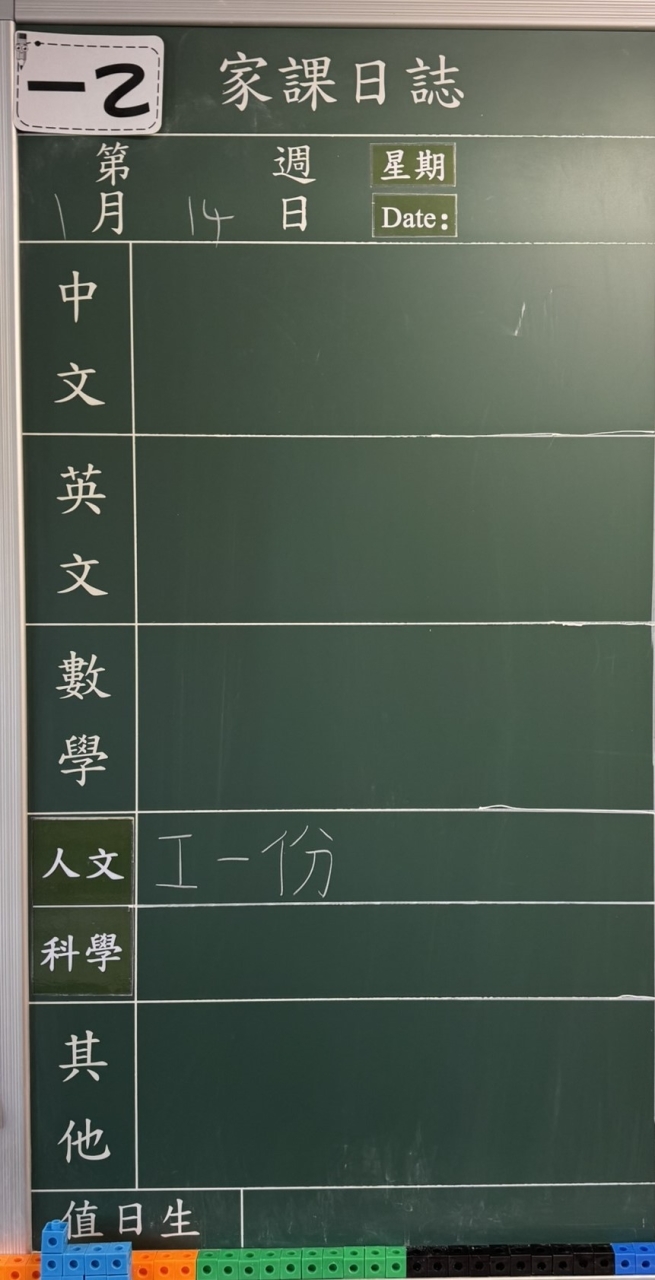 一乙
家課日誌
第 週 星期
1月 14日 Date:
中文
英文
數學
人文 工一份
科學
其他
值日生